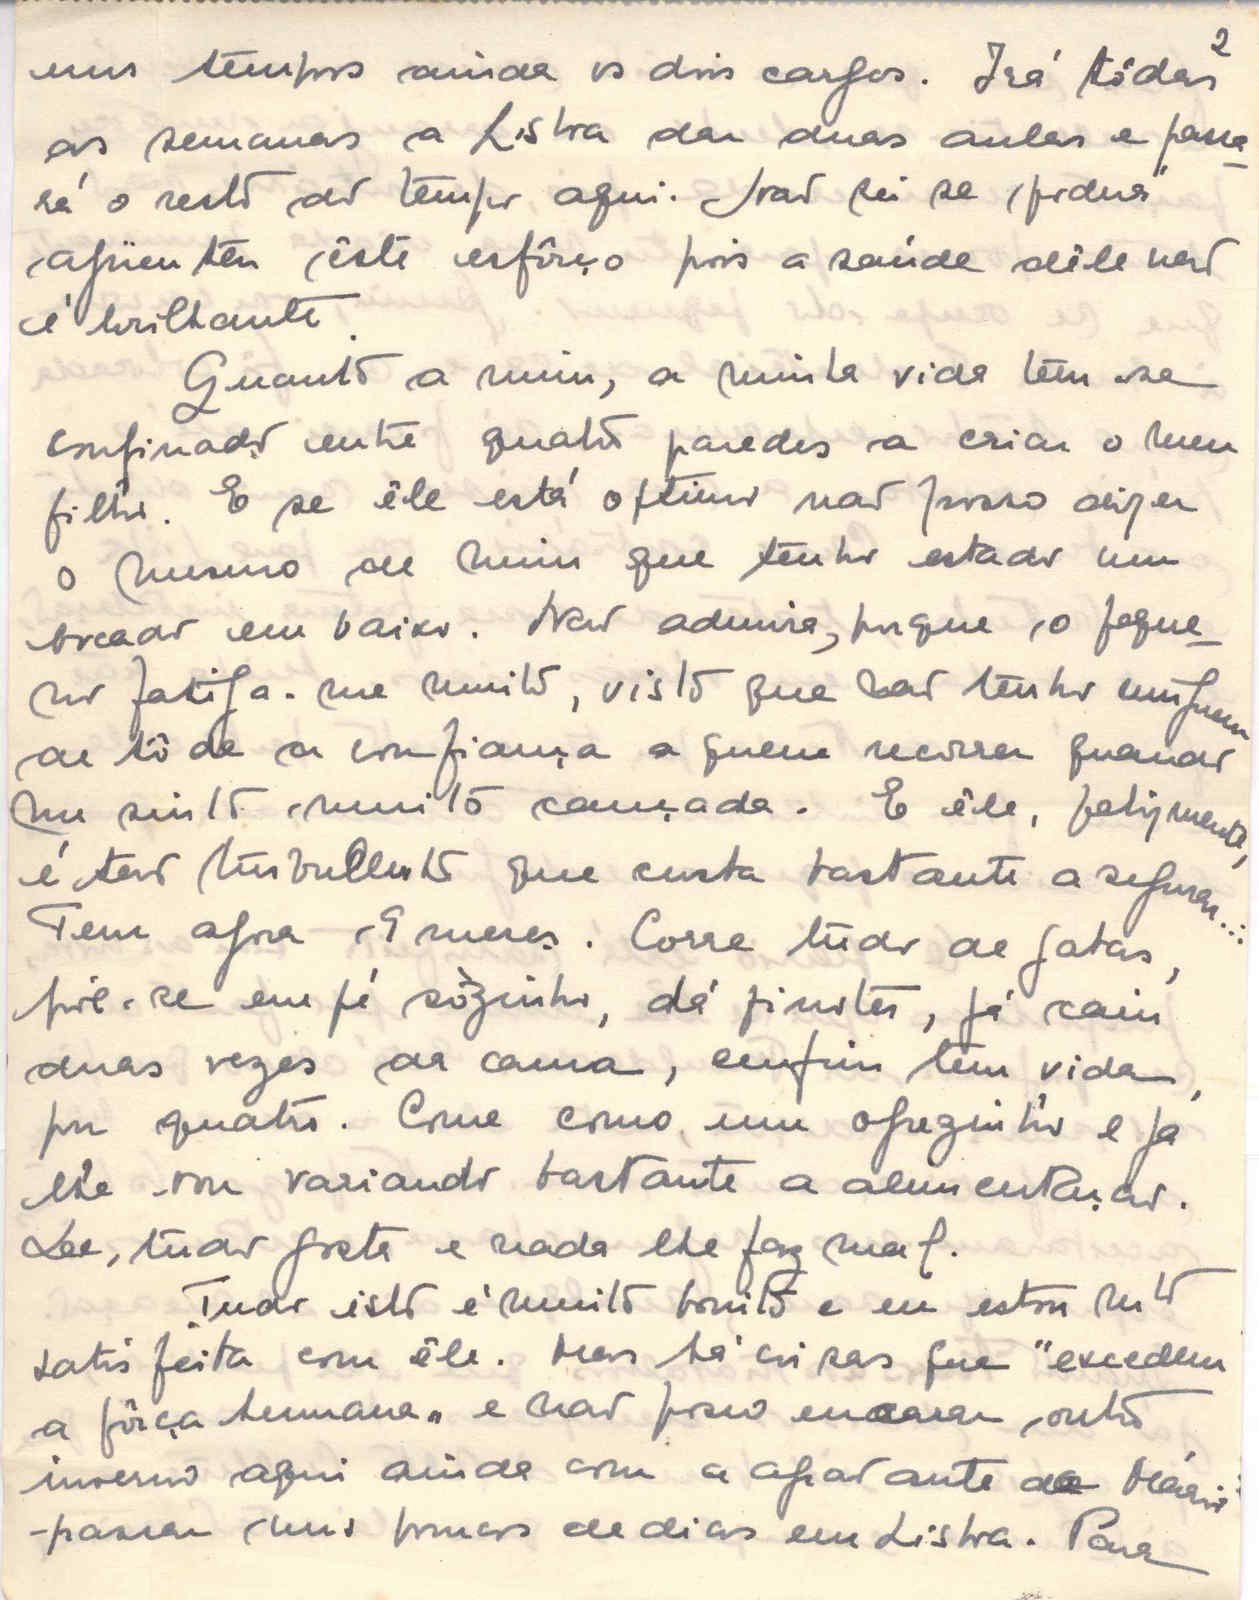 2
uns tempos ainda os dois cargos. Irá tôdas
as semanas a Lisboa dar duas aulas e passa-
rá o resto do tempo aqui. Não sei se poderá
agüentar êste esfôrço pois a saúde dêle não
é brilhante.
Quanto a mim, a minha vida tem-se
confinado entre quatro paredes a criar o meu
filho. E se êle está óptimo não posso dizer
o mesmo de mim que tenho estado um
bocado em baixo. Não admira, porque o peque-
no fatiga-me muito, visto que não tenho ninguem
de tôda a confiança a quem recorrer quando
me sinto muito cançada. E êle, felizmente,
é tão turbulento que custa bastante a segurar...
Tem agora 9 meses. Corre tudo de gatas,
põe-se em pé sòzinho, dá pinotes, já caiu
duas vezes da cama, emfim tem vida
por quatro. Come como um ogrezinho e já
lhe vou variando bastante a alimentação.
De tudo gosta e nada lhe faz mal.
Tudo isto é muito bonito e eu estou mto
satisfeita com êle. Mas há coisas que "excedem
a fôrça humana" e não posso encarar outro
inverno aqui ainda com a agravante de Mário
passar uns poucos de dias em Lisboa. Para